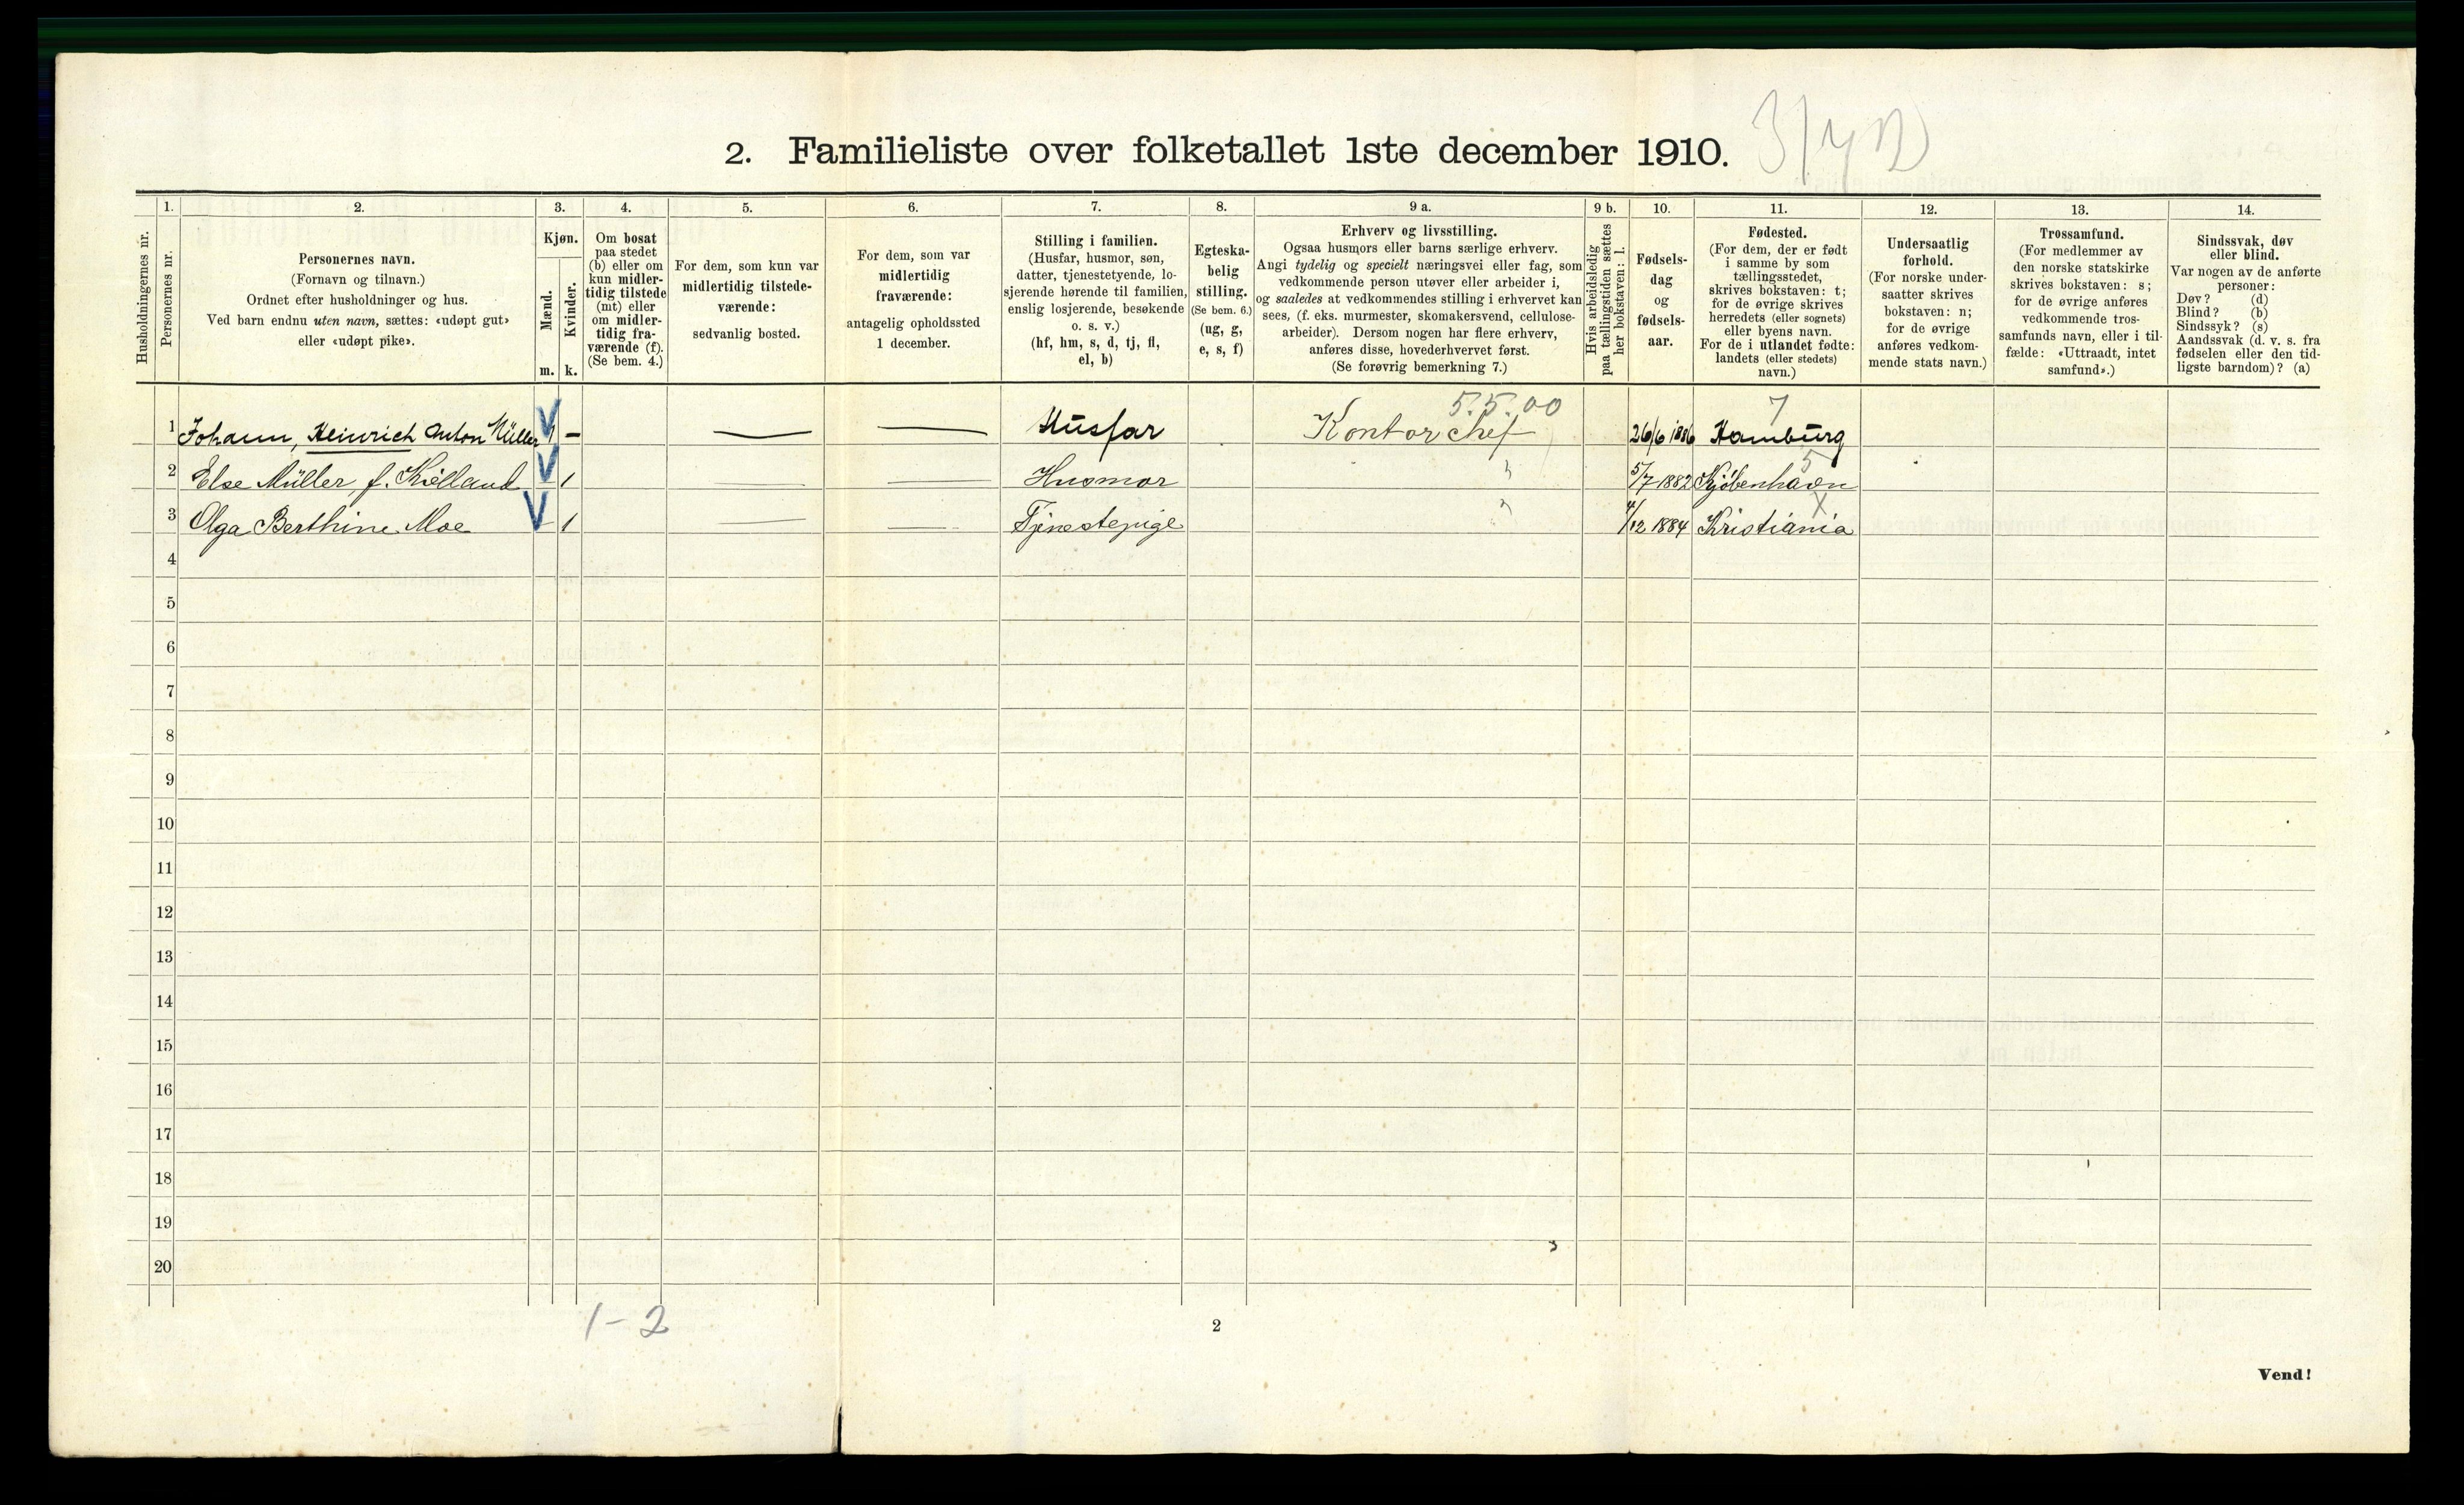 2. Familieliste over folketallet 1ste december 1910.
Husholdningernes nr.
1.
Personernes nr.
2.
Personernes navn.
(Fornavn og tilnavn.)
Ordnet efter husholdninger og hus.
Ved barn endnu uten navn, sættes: «udøpt gut»
eller «udøpt pike».
3.
Kjøn.
Mænd.
Kvinder.
m. k.
4.
Om bosat
paa stedet
(b) eller om
kun midler-
tidig tilstede
(mt) eller
om midler-
tidig fra-
værende (f).
(Se bem. 4.)
5.
For dem, som kun var
midlertidig tilstede-
værende:
sedvanlig bosted.
6.
For dem, som var
midlertidig
fraværende:
antagelig opholdssted
1 december.
7.
Stilling i familien.
(Husfar, husmor, søn,
datter, tjenestetyende, lo-
sjerende hørende til familien,
enslig losjerende, besøkende
o. s. v.)
(hf, hm, s, d, tj, fl,
el, b)
8.
Egteska-
belig
stilling.
(Se bem. 6.)
(ug, g,
e, s, f)
9 a.
Erhverv og livsstilling.
Ogsaa husmors eller barns særlige erhverv.
Angi tydelig og specielt næringsvei eller fag, som
vedkommende person utøver eller arbeider i,
og saaledes at vedkommendes stilling i erhvervet kan
sees, (f. eks. murmester, skomakersvend, cellulose-
arbeider). Dersom nogen har flere erhverv,
anføres disse, hovederhvervet først.
(Se forøvrig bemerkning 7.)
9 b.
Hvis arbeidsledig
paa tællingstiden sættes
her bokstaven: l.
10.
Fødsels-
dag
og
fødsels-
aar.
11.
Fødested.
(For dem, der er født
i samme by som
tællingsstedet,
skrives bokstaven: t;
for de øvrige skrives
herredets (eller sognets)
eller byens navn.
For de i utlandet fødte:
landets (eller stedets)
navn.)
12.
Undersaatlig
forhold.
(For norske under-
saatter skrives
bokstaven: n;
for de øvrige
anføres vedkom-
mende stats navn.)
13.
Trossamfund.
(For medlemmer av
den norske statskirke
skrives bokstaven: s;
for de øvrige anføres
vedkommende tros-
samfunds navn, eller i til-
fælde: «Uttraadt, intet
samfund».)
14.
Sindssvak, døv
eller blind.
Var nogen av de anførte
personer:
Døv? (d)
Blind? (b)
Sindssyk? (s)
Aandssvak (d. v. s. fra
fødselen eller den tid-
ligste barndom)? (a)
5.5.00 7
1 Johann, Heinrich Anton Müller 1 – — — Husfar Kontorchef 26/6 1886 Hamburg
5
2 Else Müller, f. Kielland 1 — — Husmor 5/7 1882 Kjøbenhavn
X
3 Olga Berthine Moe 1 — — Tjenestepige 4/12 1884 Kristiania
4
5
6
7
8
9
10
11
12
13
14
15
16
17
18
19
20
1–2
2
Vend!